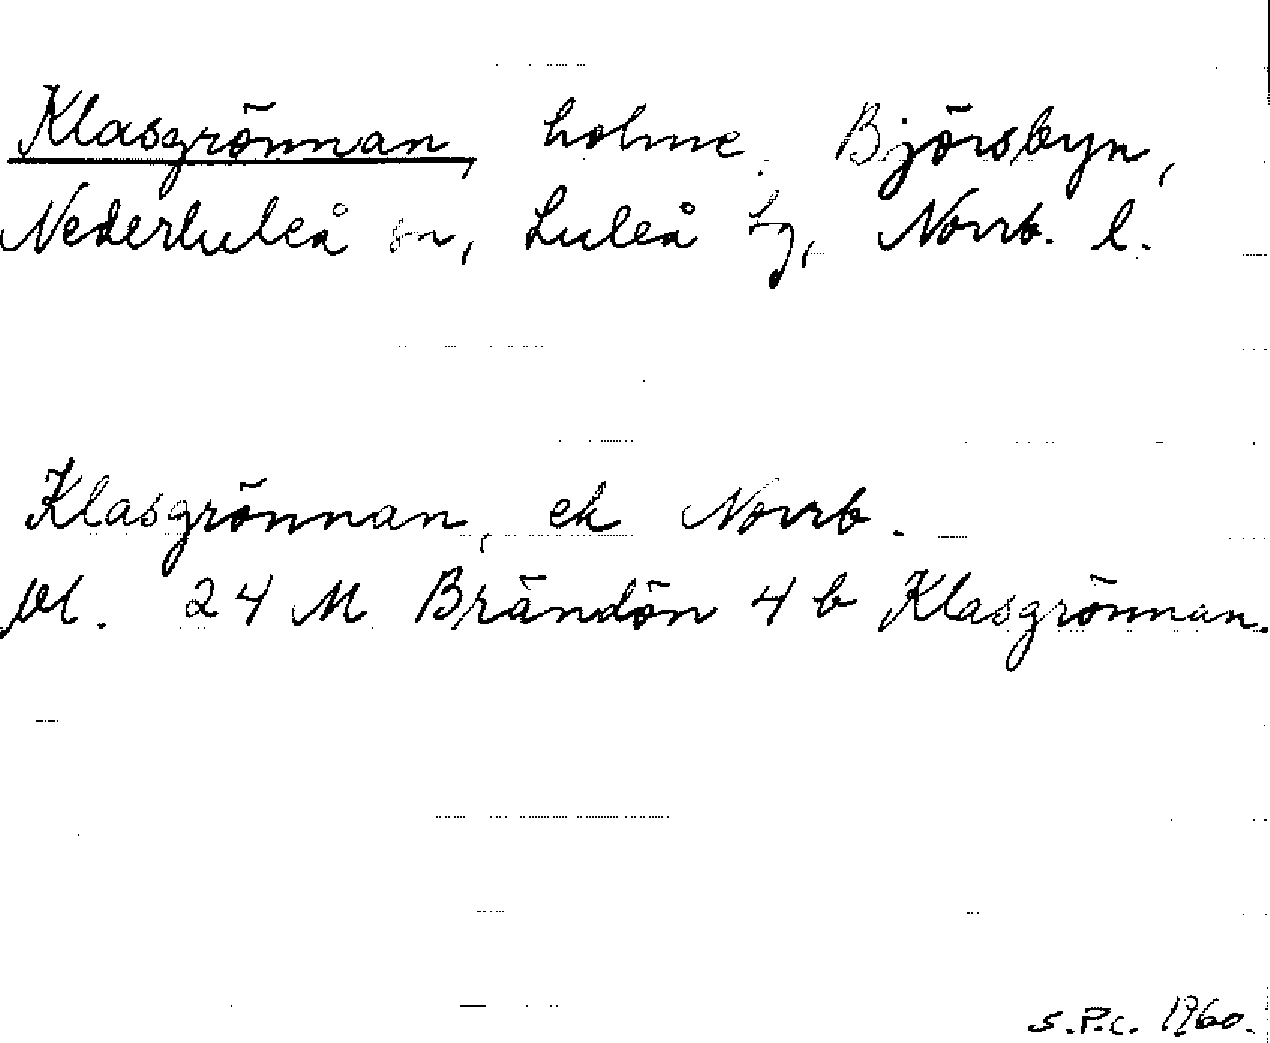 Klasgrönnan, holme. Björsbyn,
Nederluleå sn, Luleå tg, Norrb. l.
Klasgrönnan, ek Norrb.
bl. 24 M Brändön 4 b Klasgrönnan.
S.P.C. 1960.